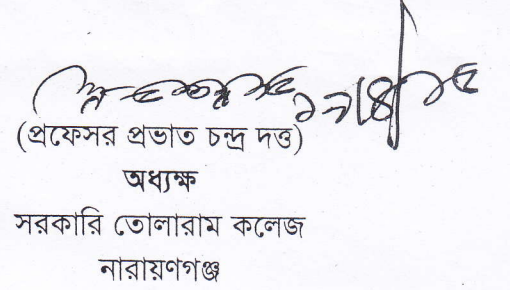 (প্রফেসর প্রভাত চন্দ্র দত্ত)
অধ্যক্ষ
সরকারি তোলারাম কলেজ
নারায়ণগঞ্জ